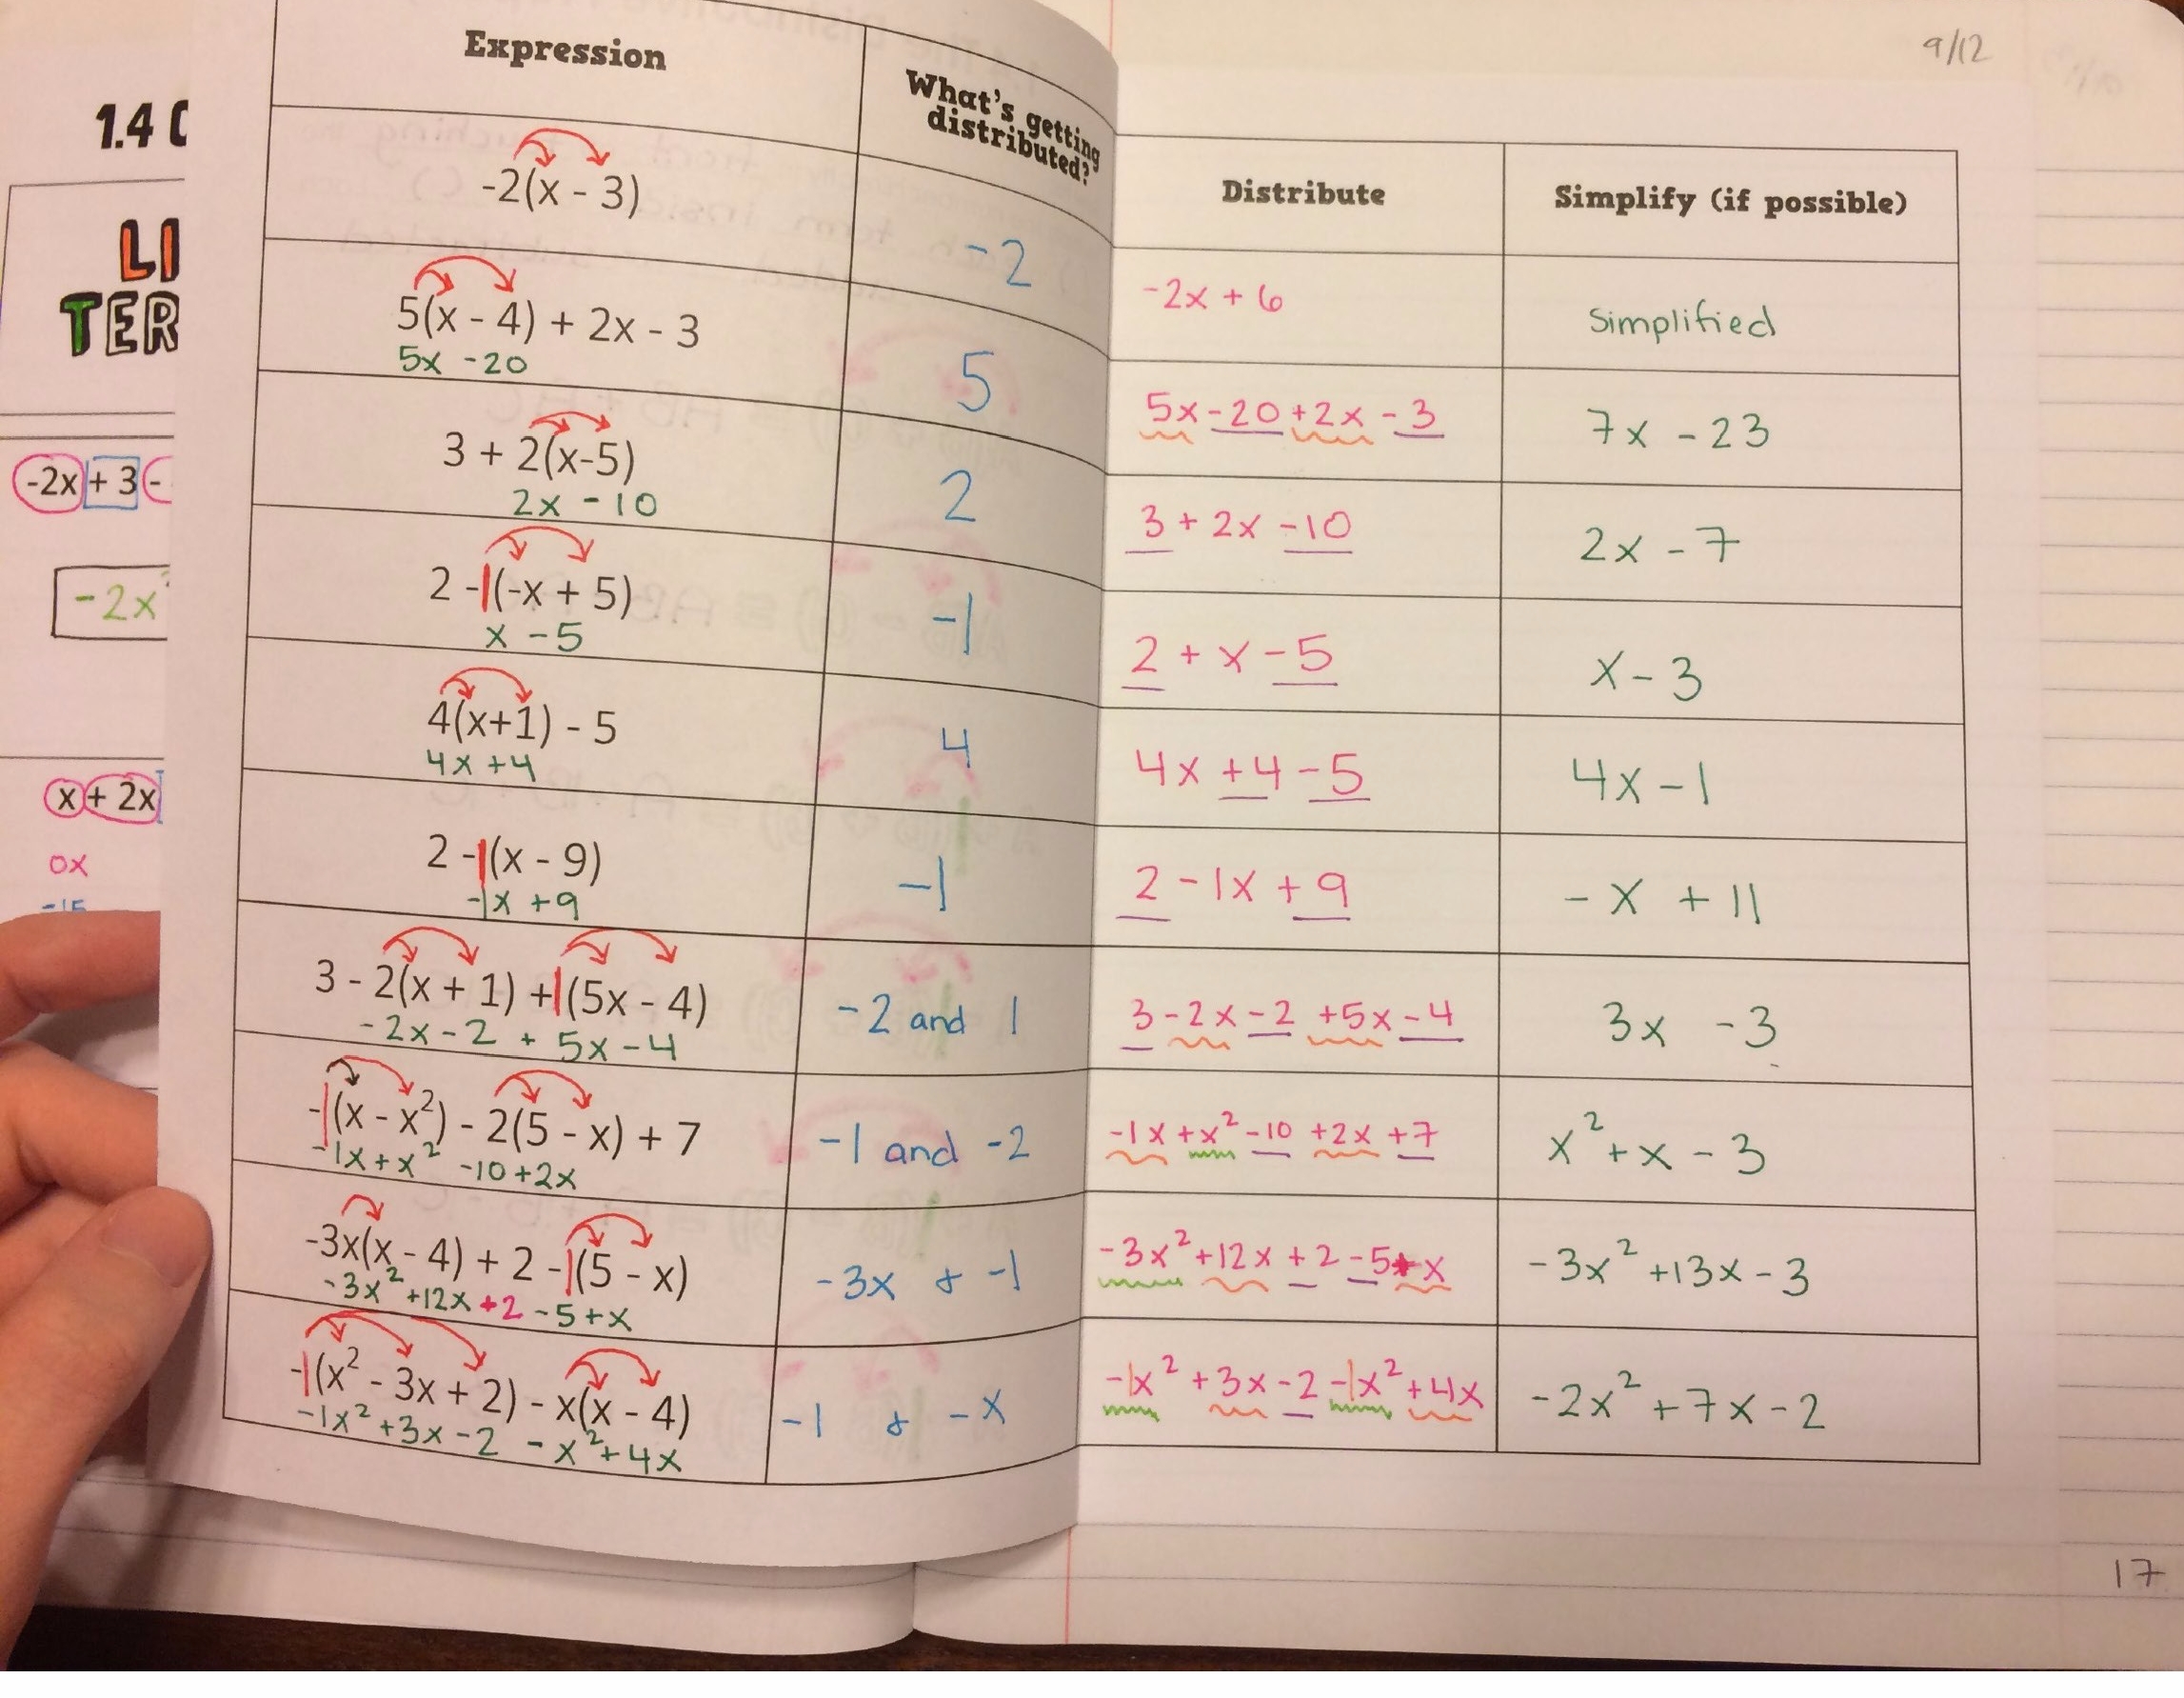 9/12
1.4
LI
TER
-2x + 3 -
-2x²
x + 2x
0x
-15
Expression
What's getting distributed?
Distribute
Simplify (if possible)
-2(x - 3)
-2
-2x + 6
Simplified
5(x - 4) + 2x - 3
5x -20
5
5x - 20 + 2x - 3
7x - 23
3 + 2(x-5)
2x - 10
2
3 + 2x - 10
2x - 7
2 -1(-x + 5)
x - 5
-1
2 + x - 5
x - 3
4(x+1) - 5
4x +4
4
4x + 4 - 5
4x - 1
2 -1(x - 9)
-1x +9
-1
2 - 1x + 9
- x + 11
3 - 2(x + 1) +1(5x - 4)
-2x - 2 + 5x - 4
-2 and 1
3 - 2x - 2 + 5x - 4
3x - 3
-1(x - x²) - 2(5 - x) + 7
-1x + x² -10 + 2x
-1 and -2
-1x + x² - 10 + 2x + 7
x² + x - 3
-3x(x - 4) + 2 -1(5 - x)
-3x² +12x +2 -5 + x
-3x & -1
-3x² + 12x + 2 - 5 + x
-3x² + 13x - 3
-1(x² - 3x + 2) - x(x - 4)
-1x² + 3x - 2 - x² + 4x
-1 & -x
-1x² + 3x - 2 - 1x² + 4x
-2x² + 7x - 2
17